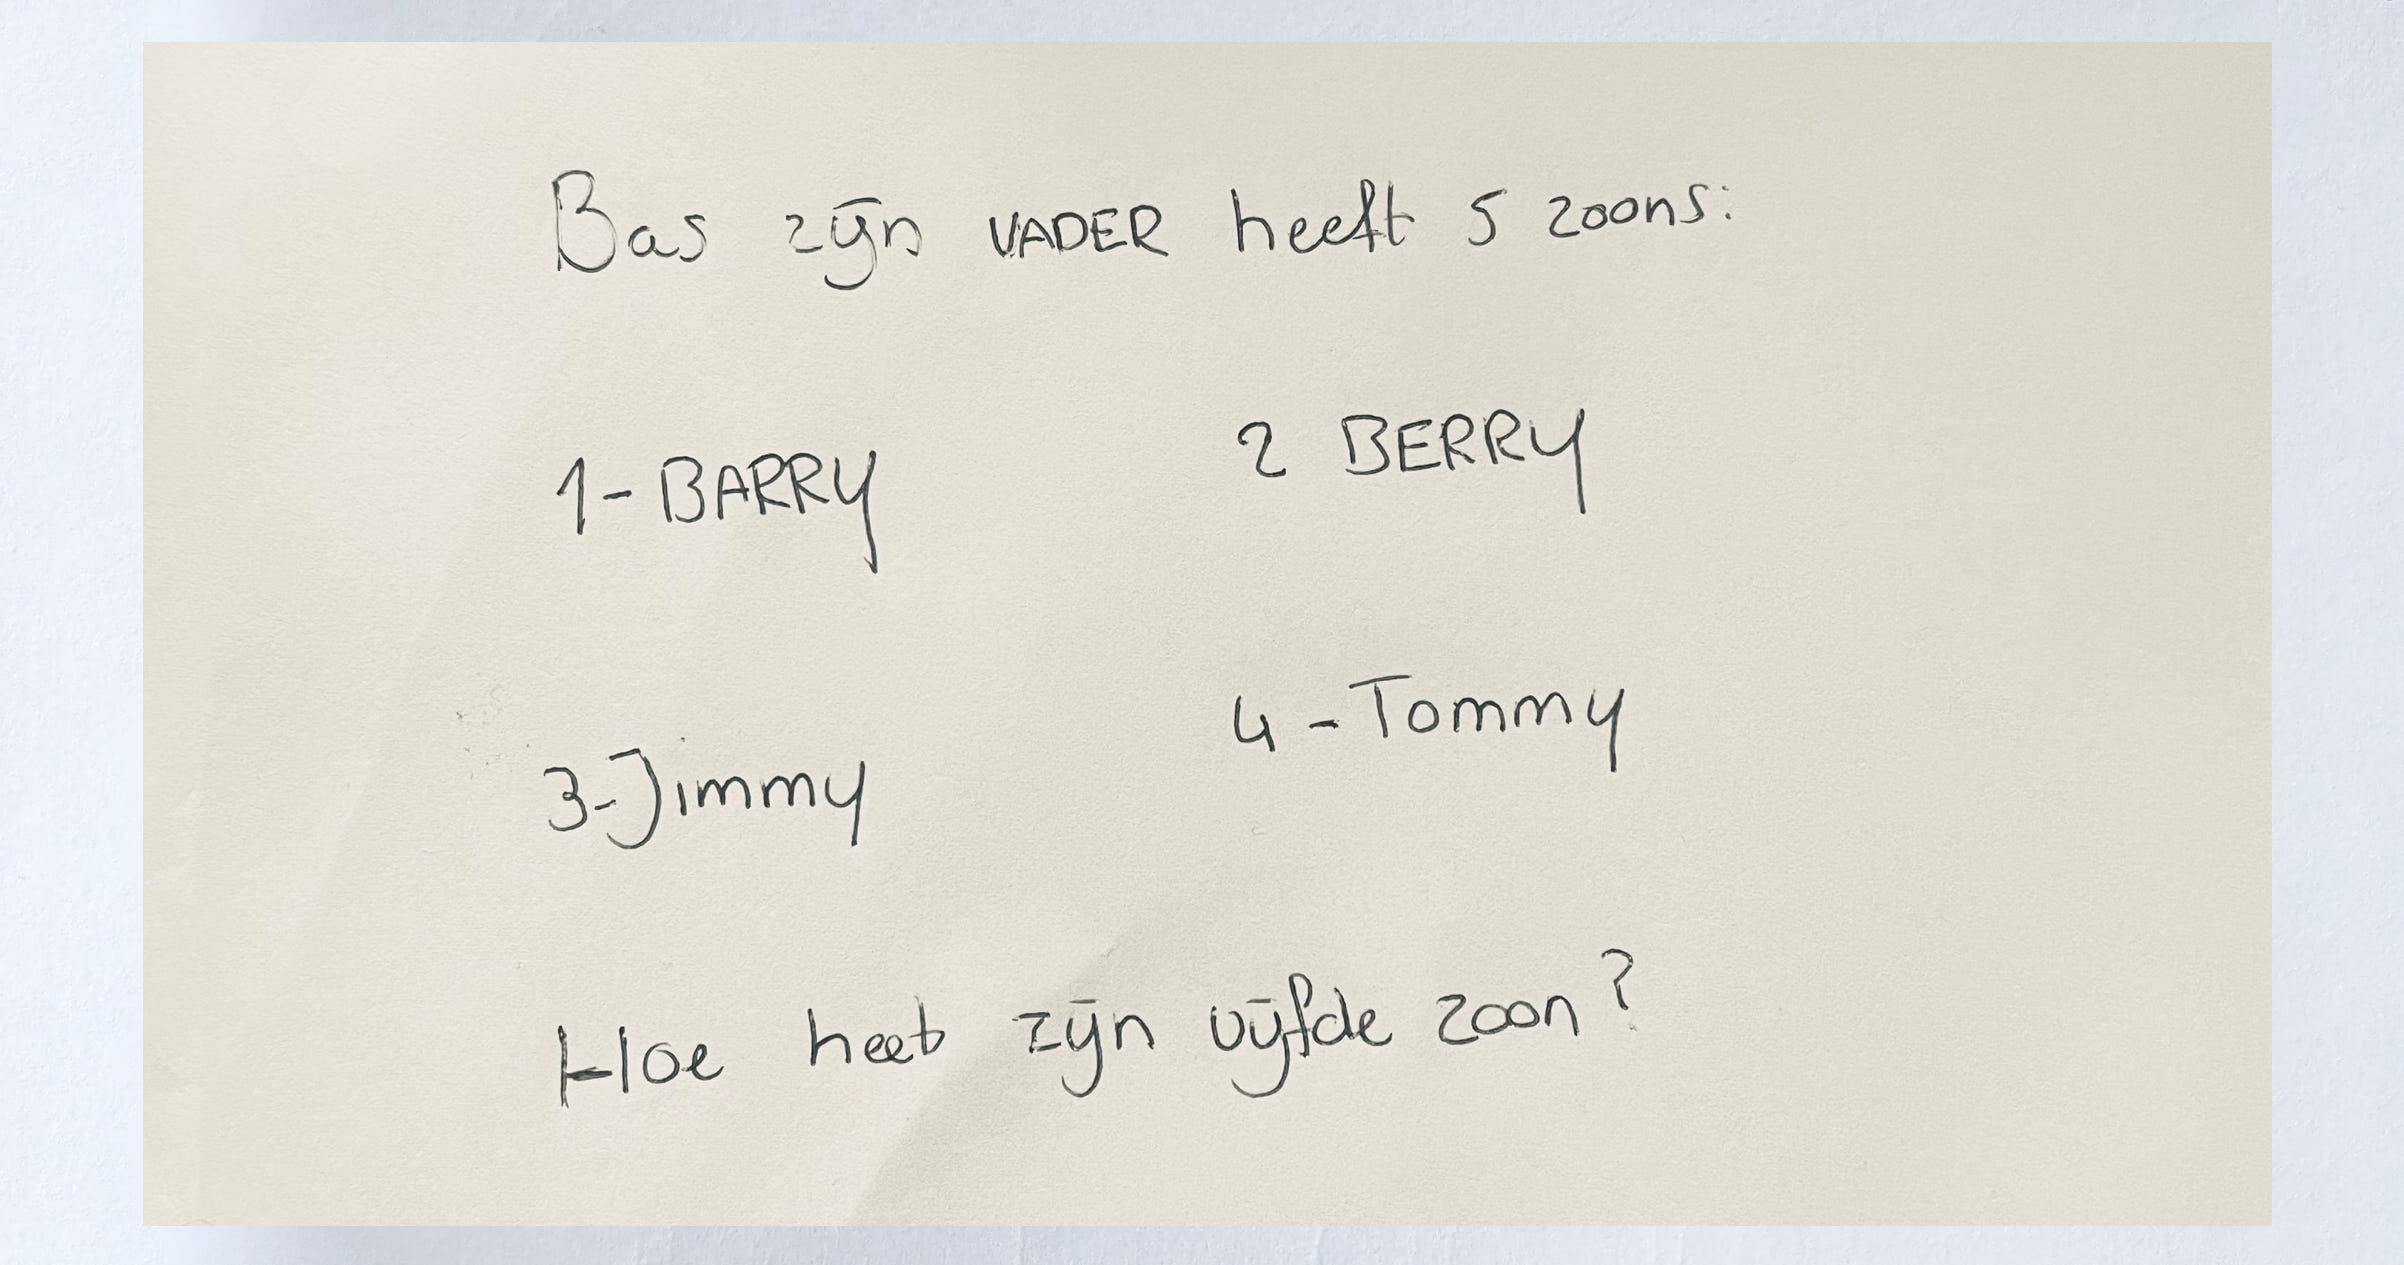 Bas zijn VADER heeft 5 zoons:
1-BARRY
2 BERRY
3-Jimmy
4-Tommy
Hoe heet zijn vijfde zoon?